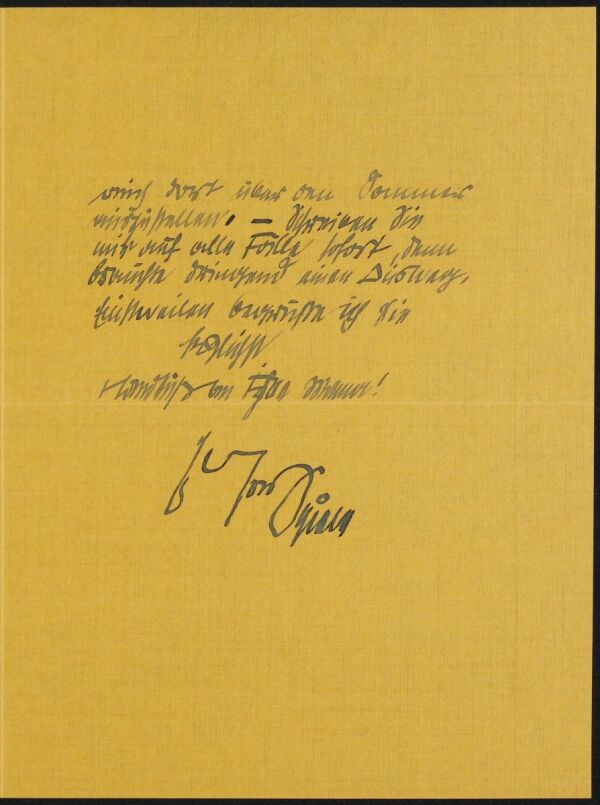 mich dort über den Sommer
auszustellen. — Schreiben Sie
mir auf alle Fälle sofort, denn
brauche dringend einen Ausweg.
Einstweilen begrüße ich Sie
herzlichst
Handkuß an Frau
Ihr